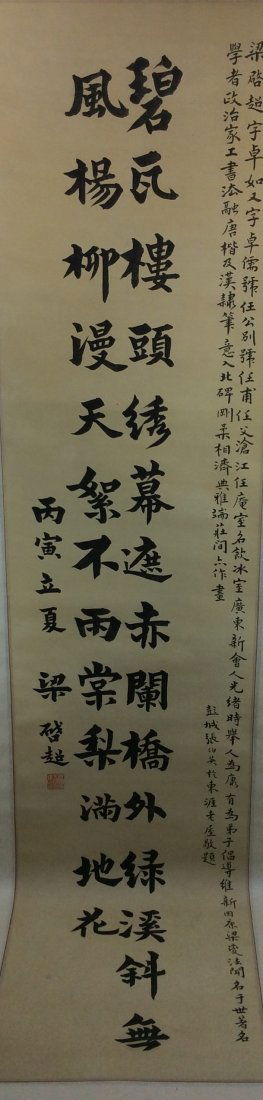 梁啓超字卓如又字卓儒號任公別號任甫任父滄江任庵室名飲冰室廣東新會人光緒時舉人為康有為弟子倡導維新因原梁變法聞名于世著名
學者政治家工書法融唐楷及漢隸筆意入北碑剛柔相濟典雅端莊間亦作畫
彭城張伯英於東涯老屋敬題
碧瓦樓頭綉幕遮赤闌橋外綠溪斜無
風楊柳漫天絮不雨棠梨滿地花
丙寅立夏 梁啓超